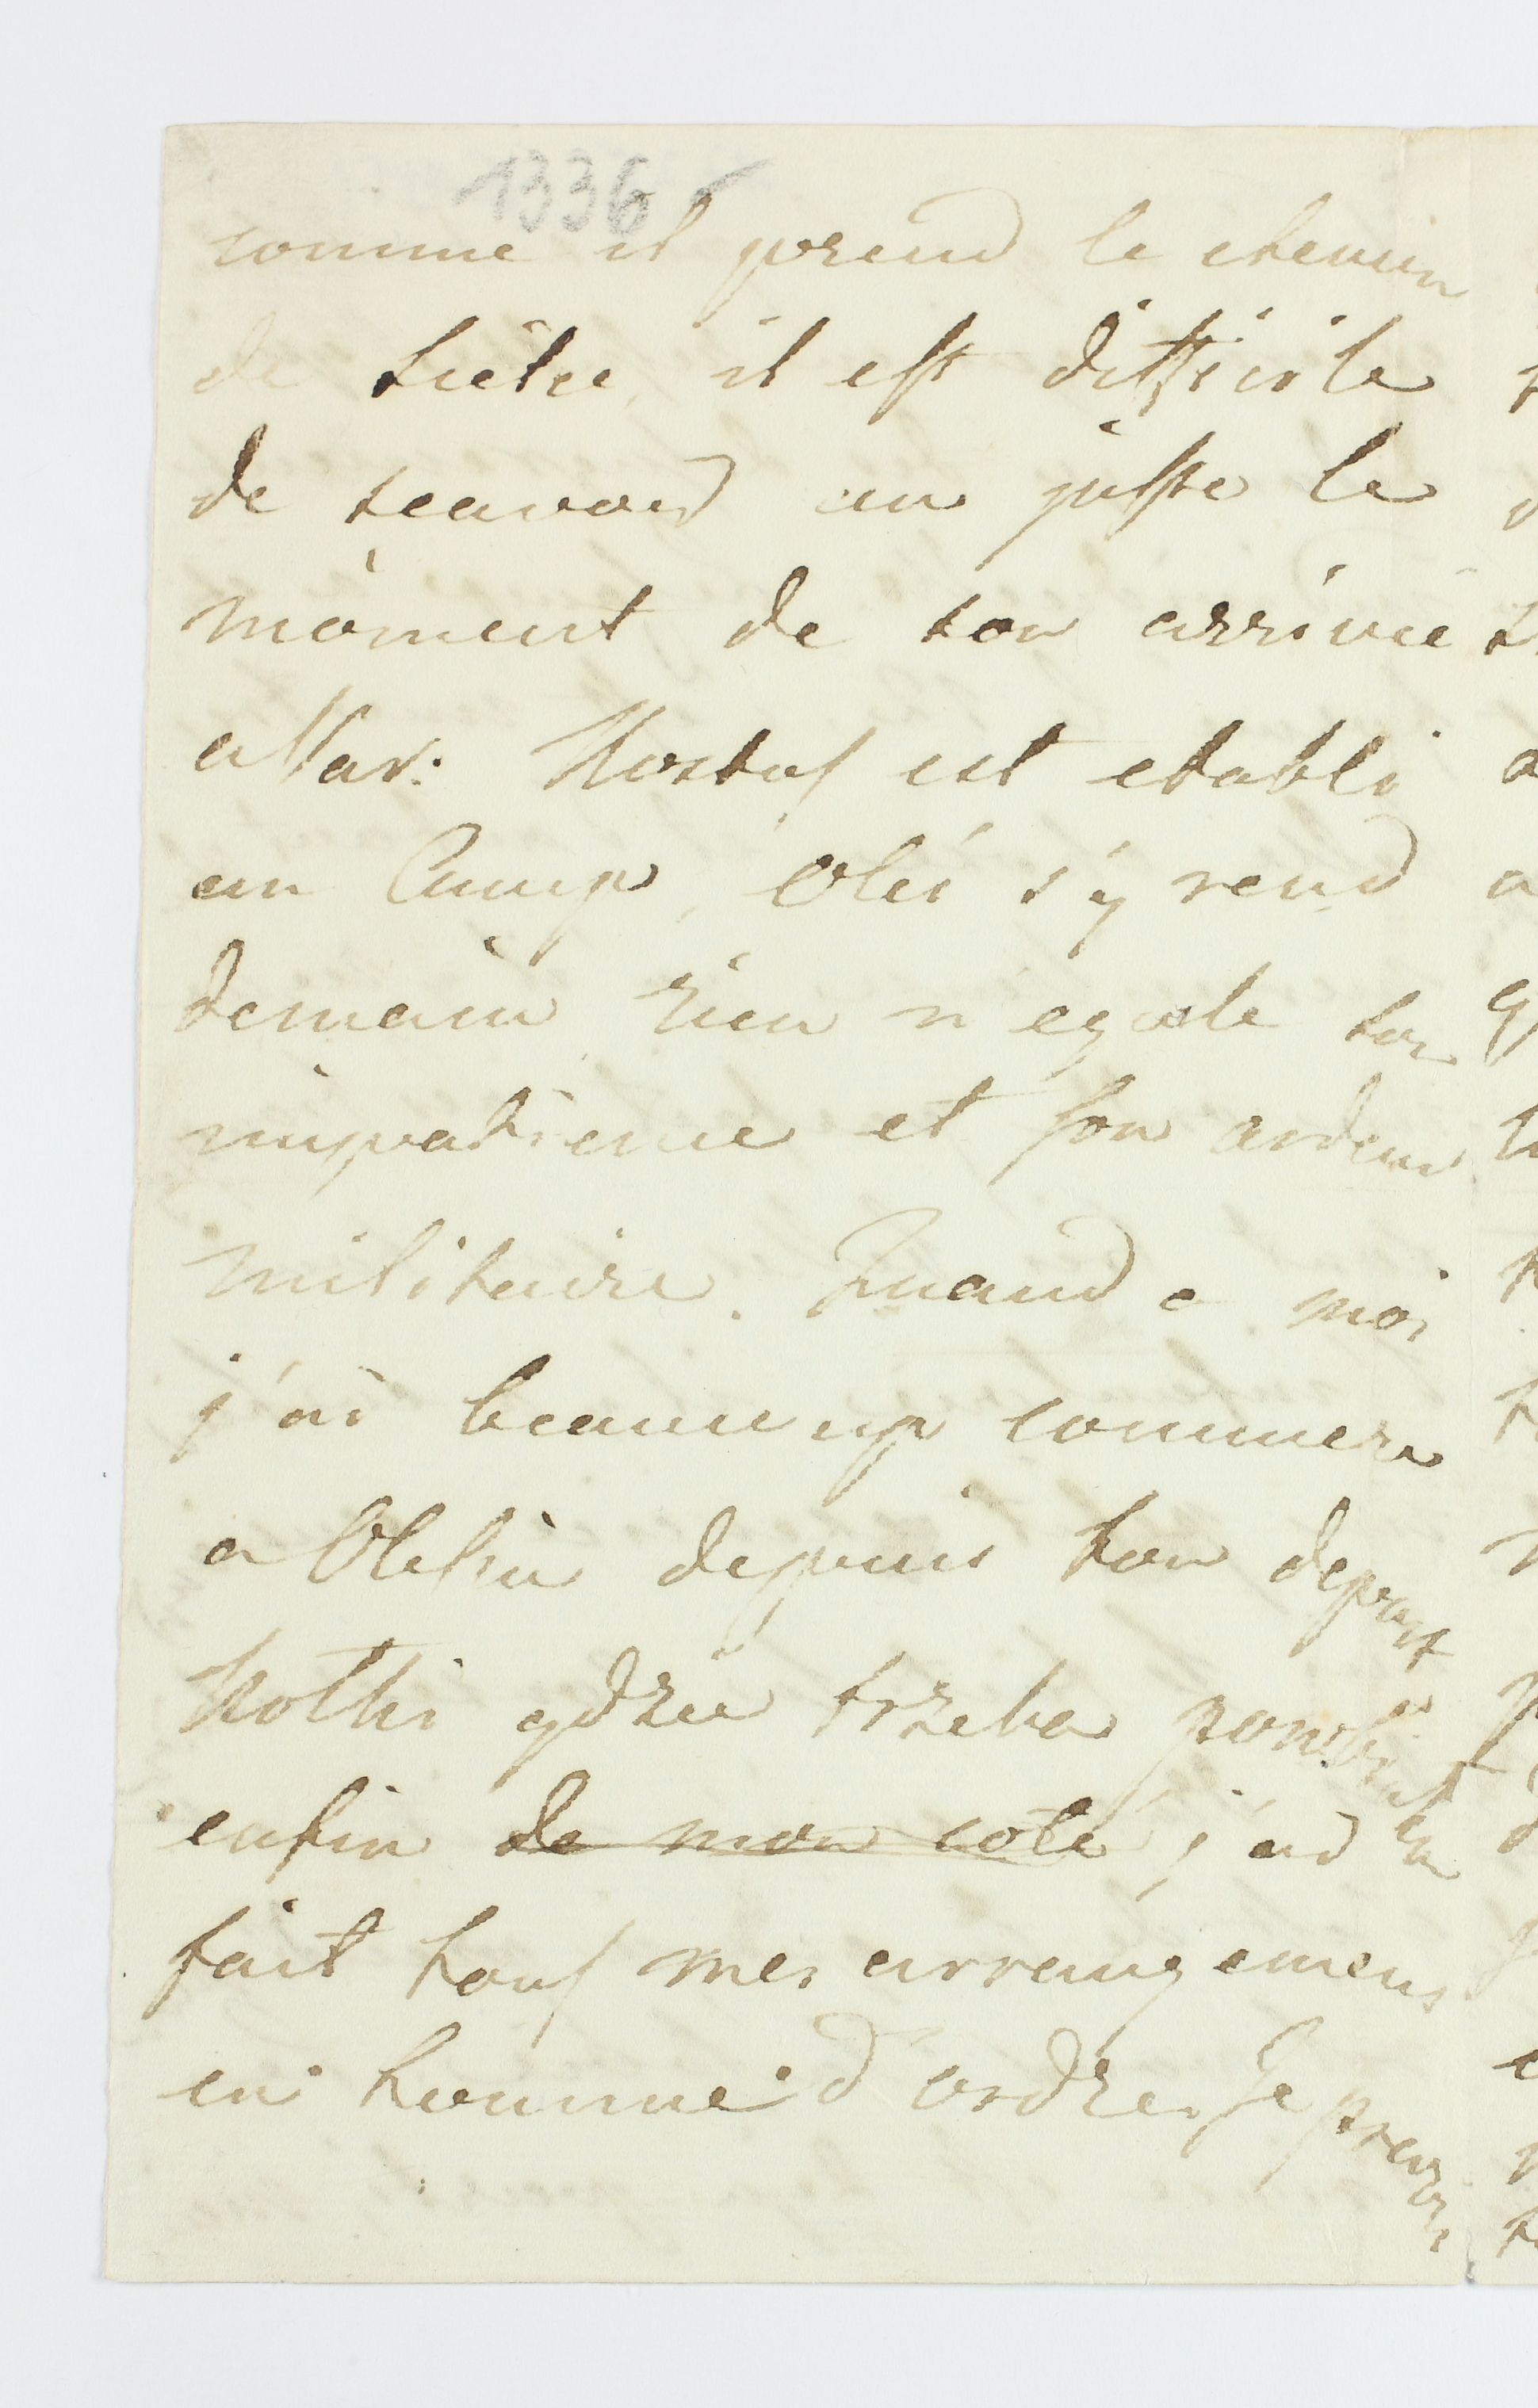 1336
comme il prend le chemin
de Kielce, il est difficile
de scavoir au juste le
moment de son arrivée
a Var: Mostof est etabli
au Camp, Olés s'y rend
demain rien n'egale son
impatience et son ardeur
militaire. Quand a moi
j'ai beaucoup
a Olesin depuis ton depart
gdzie trzeba
enfin de mon coté j'ai
fait tous mes arrangemens
en homme d'ordre. Je prendrai